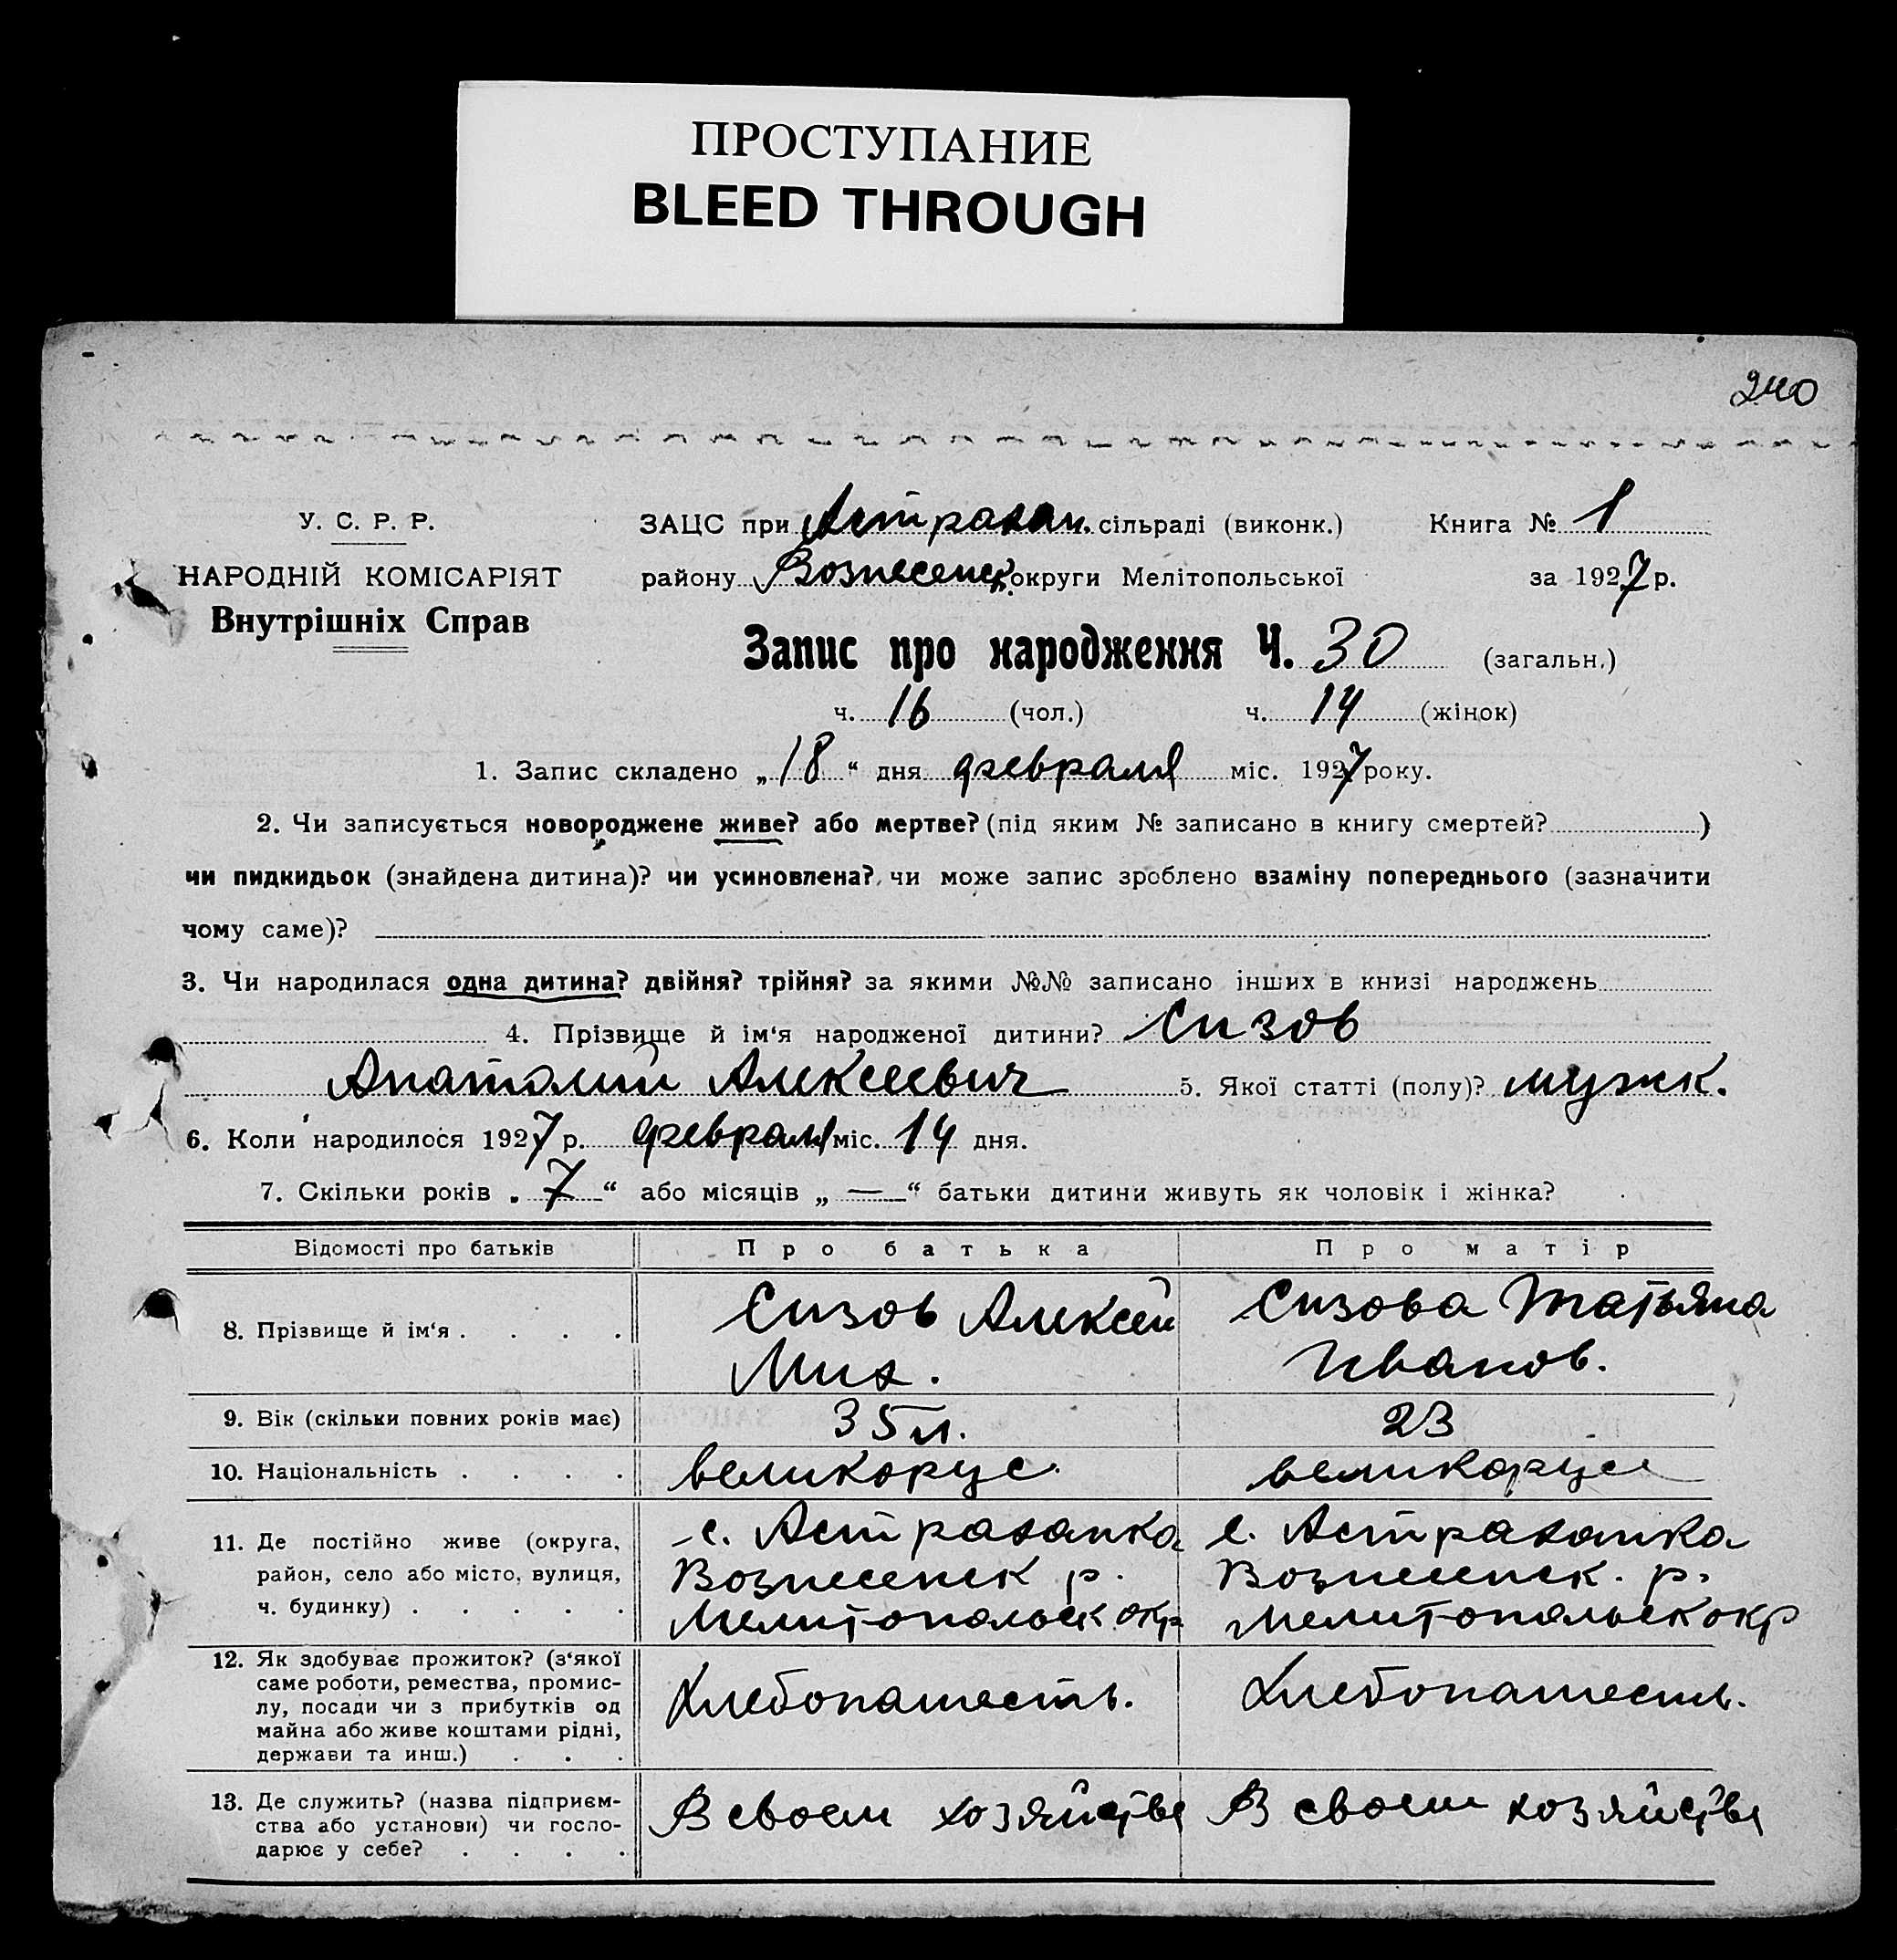 ПРОСТУПАНИЕ
BLEED THROUGH
240
У. С. Р. Р.
НАРОДНІЙ КОМІСАРІЯТ
Внутрішніх Справ
ЗАЦС при Астрахан. сільраді (виконк.) Книга № 1
району Вознесенск. округи Мелітопольської за 1927 р.
Запис про народження Ч. 30 (загальн.)
ч. 16 (чол.) ч. 14 (жінок)
1. Запис складено „18“ дня февраля міс. 1927 року.
2. Чи записується новороджене живе? або мертве? (під яким № записано в книгу смертей? )
чи пидкидьок (знайдена дитина)? чи усиновлена? чи може запис зроблено взаміну попереднього (зазначити
чому саме)?
3. Чи народилася одна дитина? двійня? трійня? за якими №№ записано інших в книзі народжень
4. Прізвище й ім‘я народженої дитини? Сизов
Анатолий Алексеевич 5. Якої статті (полу)? мужк.
6. Коли народилося 1927 р. февраля міс. 14 дня.
7. Скільки років „ 7 “ або місяців „ — “ батьки дитини живуть як чоловік і жінка?
Відомості про батьків Про батька Про матір
8. Прізвище й ім‘я . . . . Сизов Алексей Сизова Татьяна
Мих. Иванов.
9. Вік (скільки повних років має) 35 л. 23
10. Національність . . . . великорус. великорусс
11. Де постійно живе (округа, с. Астраханка с. Астраханка
район, село або місто, вулиця, Вознесенск р. Вознесенск. р.
ч. будинку) . . . . . Мелитопольск. окр Мелитопольск окр
12. Як здобуває прожиток? (з‘якої
саме роботи, ремества, промис-
лу, посади чи з прибутків од Хлебопашеств. Хлебопашеств.
майна або живе коштами рідні,
держави та инш.) . . .
13. Де служить? (назва підприєм-
ства або установи) чи госпо- В своем хозяйстве В своем хозяйстве
дарює у себе? . . . .